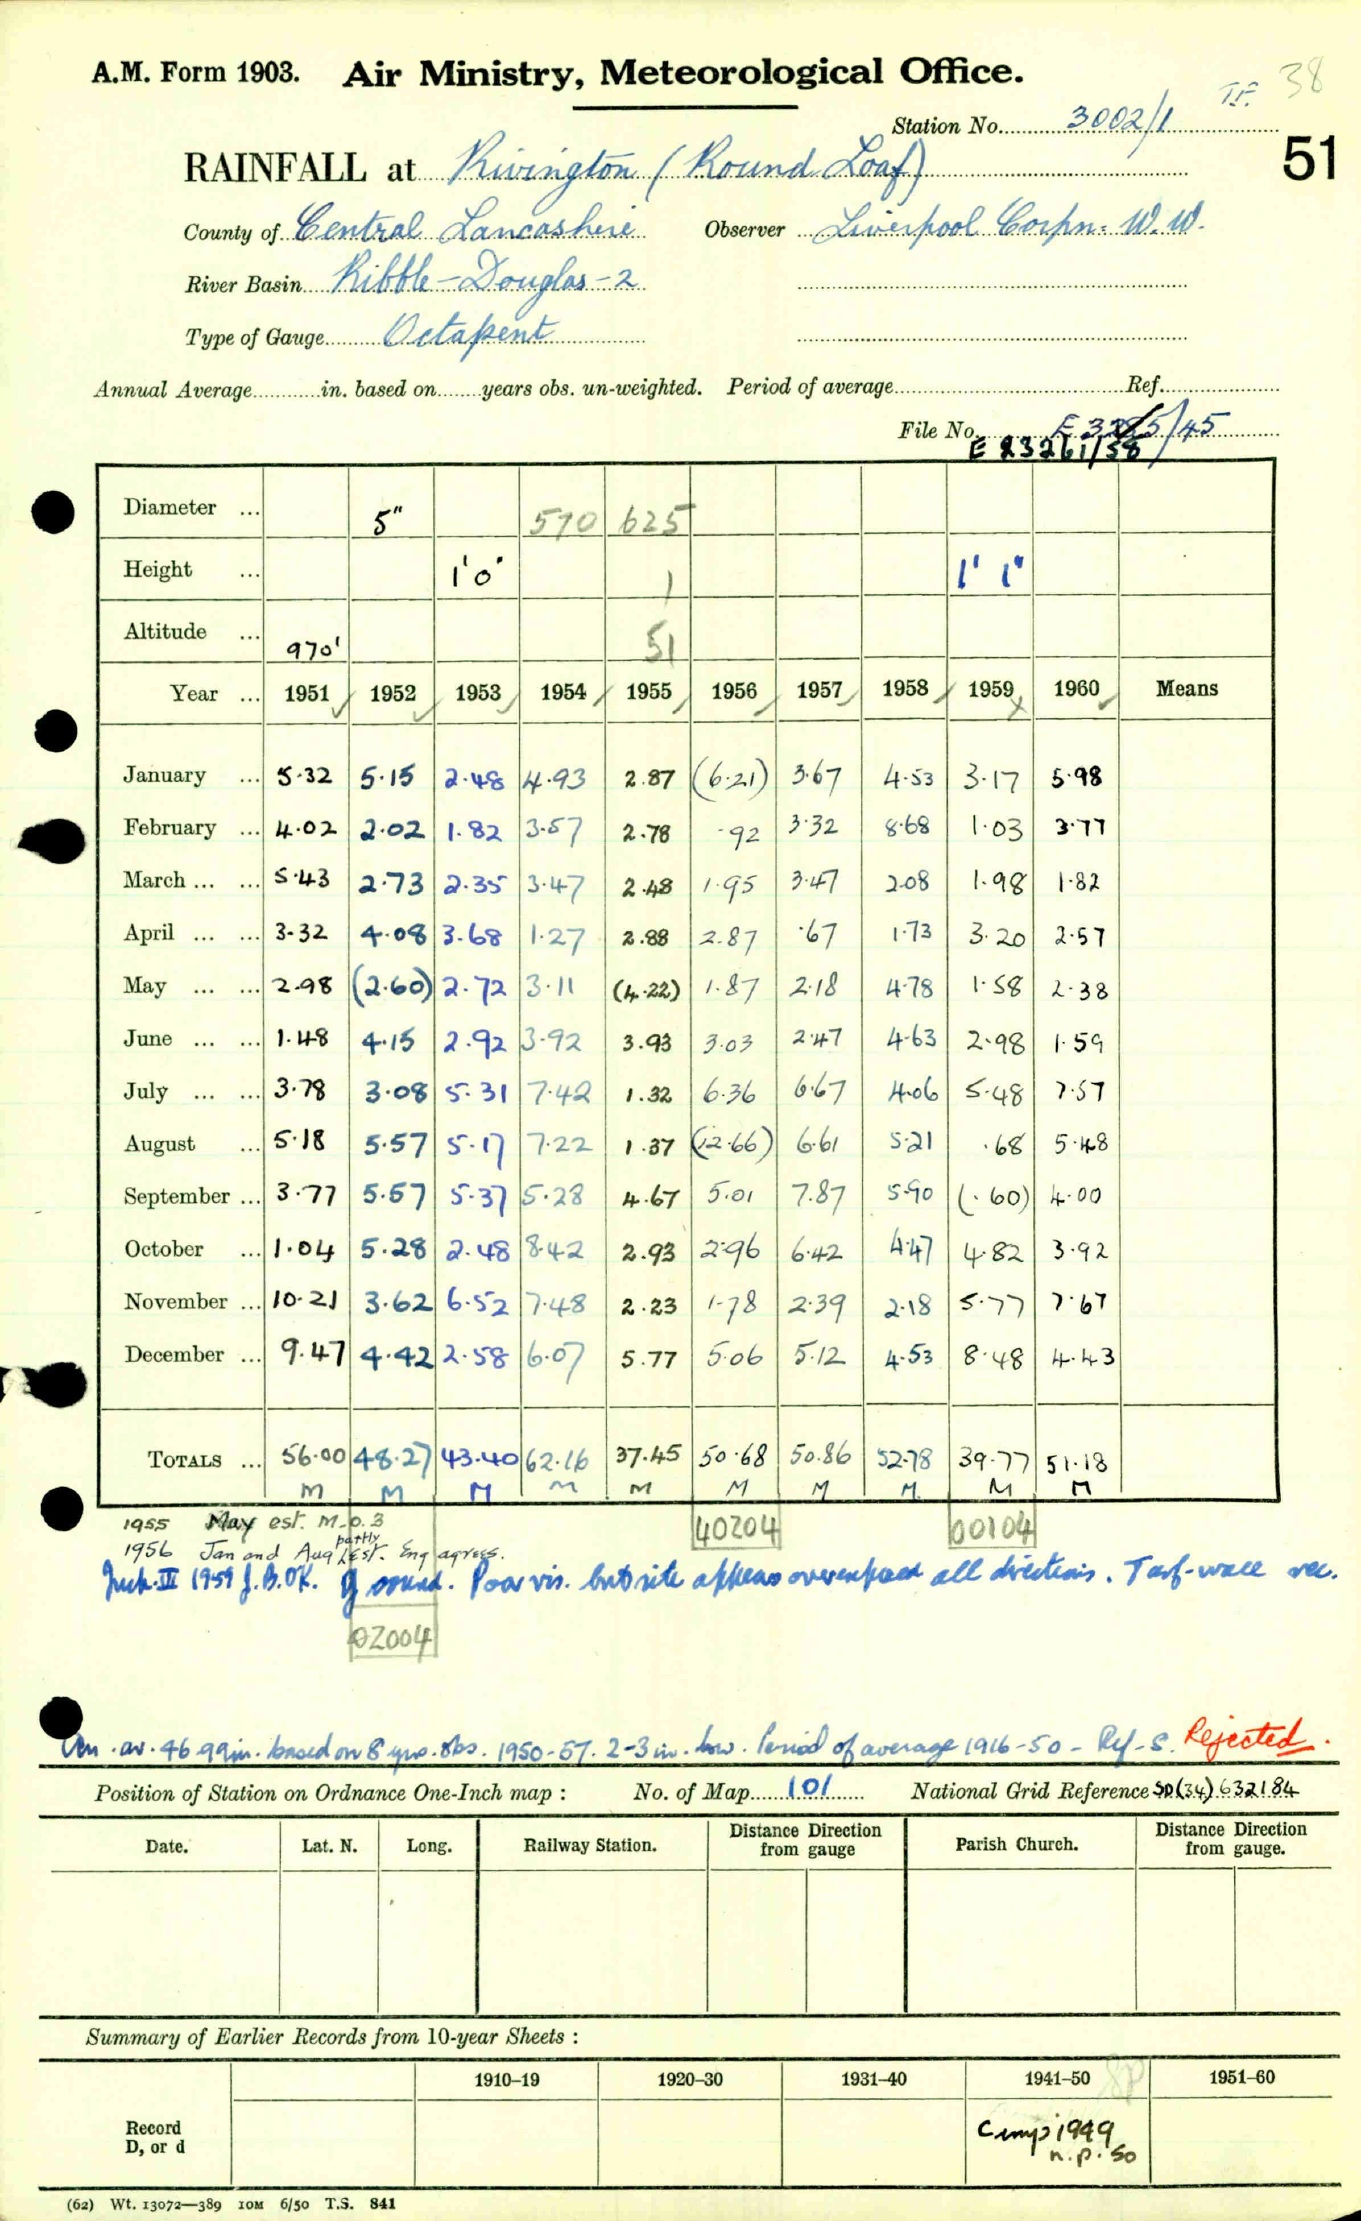 A.M. Form 1903. Air Ministry, Meteorological Office.
T.F. 38
Station No. 3002/1
51
RAINFALL at Rivington (Round Loaf)
County of Central Lancashire Observer Liverpool Corpn. W.W.
River Basin Ribble-Douglas-2
Type of Gauge Octapent
Annual Average in. based on years obs. un-weighted. Period of average Ref.
File No. /45
E 23261/58
Diameter ... 5" 570 625
Height ... 1' 0" 1 1' 1"
Altitude ... 970' 51
Year ... 1951 1952 1953 1954 1955 1956 1957 1958 1959 1960 Means
January ... 5.32 5.15 2.48 4.93 2.87 (6.21) 3.67 4.53 3.17 5.98
February ... 4.02 2.02 1.82 3.57 2.78 .92 3.32 8.68 1.03 3.77
March ... ... 5.43 2.73 2.35 3.47 2.48 1.95 3.47 2.08 1.98 1.82
April ... ... 3.32 4.08 3.68 1.27 2.88 2.87 .67 1.73 3.20 2.57
May ... ... 2.98 (2.60) 2.72 3.11 (4.22) 1.87 2.18 4.78 1.58 2.38
June ... ... 1.48 4.15 2.92 3.92 3.93 3.03 2.47 4.63 2.98 1.59
July ... ... 3.78 3.08 5.31 7.42 1.32 6.36 6.67 4.06 5.48 7.57
August ... 5.18 5.57 5.17 7.22 1.37 (12.66) 6.61 5.21 .68 5.48
September ... 3.77 5.57 5.37 5.28 4.67 5.01 7.87 5.90 (.60) 4.00
October ... 1.04 5.28 2.48 8.42 2.93 2.96 6.42 4.47 4.82 3.92
November ... 10.21 3.62 6.52 7.48 2.23 1.78 2.39 2.18 5.77 7.67
December ... 9.47 4.42 2.58 6.07 5.77 5.06 5.12 4.53 8.48 4.43
TOTALS ... 56.00 48.27 43.40 62.16 37.45 50.68 50.86 52.78 39.77 51.18
M M M M M M M M M M
1955 May est. M.O.3 40204 00104
1956 Jan and Aug partly est. Eng agrees.
II 1959 J.B.OK. G sound. Poor vis. but site appears overexposed all directions. Turf-wall rec.
02004
An. av. 46.99in. based on 8 yrs. obs. 1950-57. 2-3 in. low. Period of average 1916-50 - Ref-S. Rejected.
Position of Station on Ordnance One-Inch map : No. of Map 101 National Grid Reference SD(34) 632184
Date. Lat. N. Long. Railway Station. Distance Direction from gauge Parish Church. Distance Direction from gauge.
Summary of Earlier Records from 10-year Sheets :
1910–19 1920–30 1931–40 1941–50 1951–60
Record
D, or d
1949
n.p. 50
(62) Wt. 13072—389 10M 6/50 T.S. 841